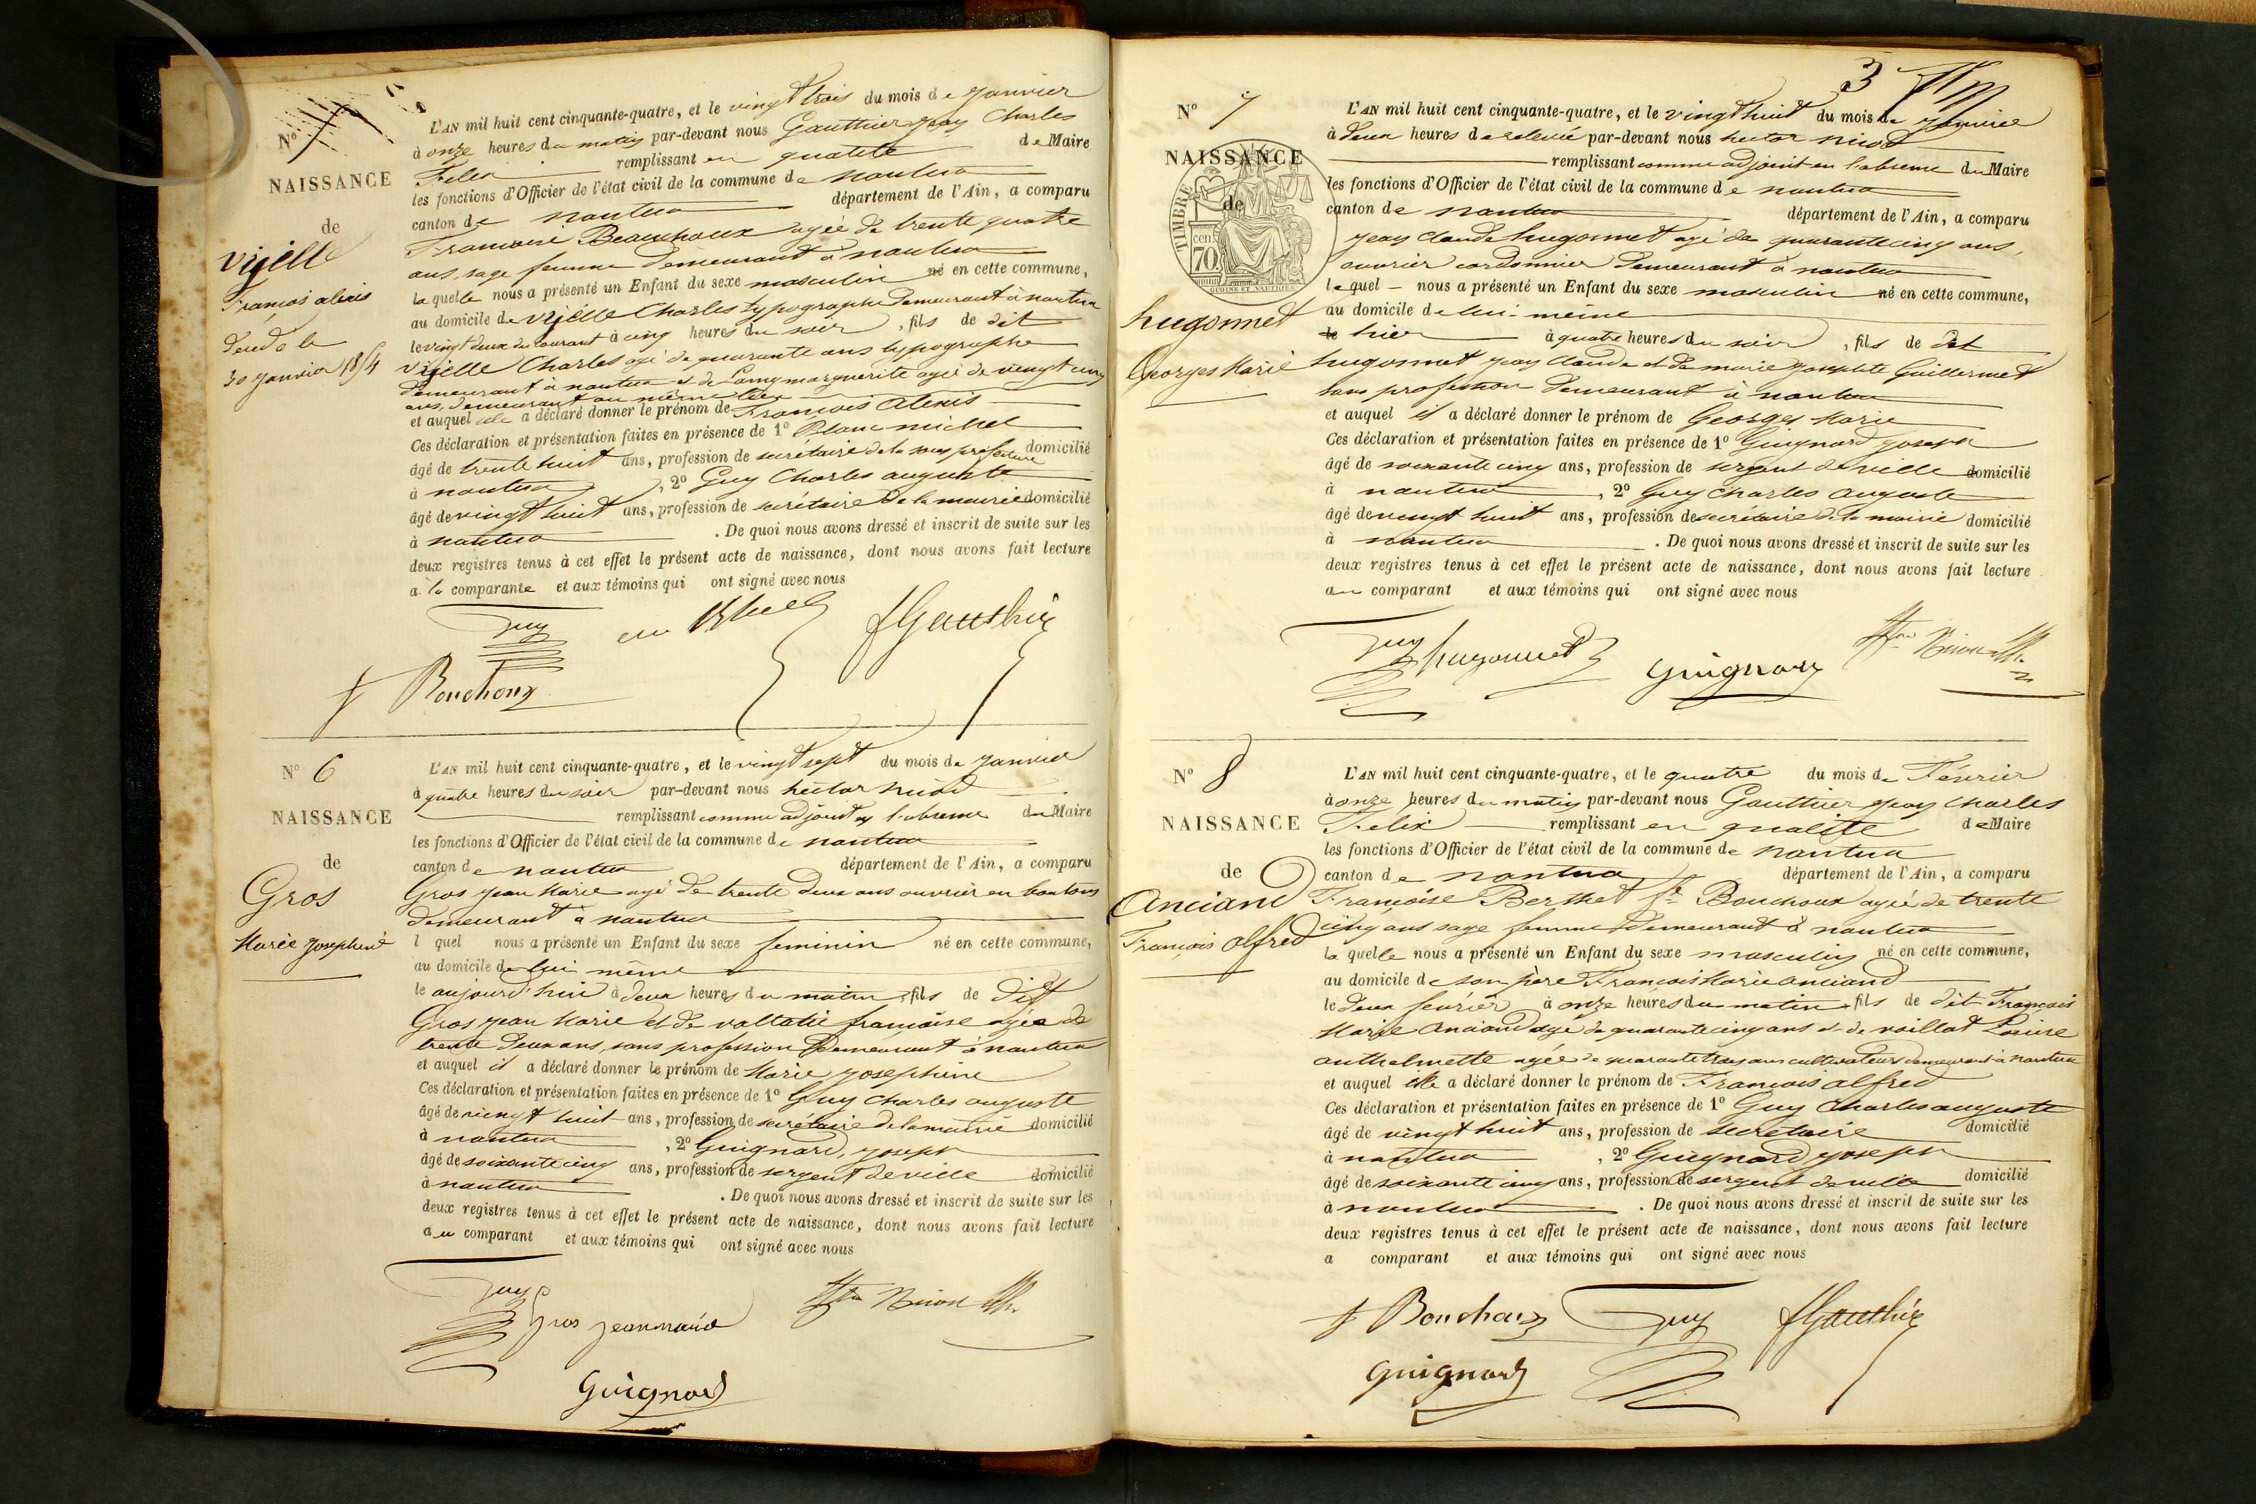 L'AN mil huit cent cinquante-quatre, et le vingt trois du mois de janvier
à onze heures du matin par-devant nous Gauthier jean Charles
Felix remplissant en qualité de Maire
les fonctions d'Officier de l'état civil de la commune de nantua
canton de nantua département de l'Ain, a comparu
Francoise Bouchoux agée de trente quatre
ans, sage femme demeurant à nantua
laquelle nous a présenté un Enfant du sexe masculin né en cette commune,
au domicile de Vijelle Charles typographe demeurant à nantua
le vingt deux du courant à cinq heures du soir, fils de dit
Vijelle Charles agé de quarante ans typographe
demeurant à nantua & de Lamy marguerite agée de vingt cinq
ans, demeurant au même lieu
et auquel elle a déclaré donner le prénom de François Alexis
Ces déclaration et présentation faites en présence de 1º Blanc michel
âgé de trente huit ans, profession de secrétaire de la sous préfecture domicilié
à nantua, 2º Guy Charles auguste
âgé de vingt huit ans, profession de secrétaire de la mairie domicilié
à nantua. De quoi nous avons dressé et inscrit de suite sur les
deux registres tenus à cet effet le présent acte de naissance, dont nous avons fait lecture
a la comparante et aux témoins qui ont signé avec nous
Nº
NAISSANCE
de
Vijelle
François alexis
décédé le
30 janvier 1854
Guy
f Gauthier
f Bouchoux
Nº 6
NAISSANCE
de
Gros
Marie Josephine
L'AN mil huit cent cinquante-quatre, et le vingt sept du mois de janvier
à quatre heures du soir par-devant nous hector nicod
remplissant comme adjoint en l'absence du Maire
les fonctions d'Officier de l'état civil de la commune de nantua
canton de nantua département de l'Ain, a comparu
Gros jean Marie agé de trente deux ans ouvrier en boutons
demeurant à nantua
l quel nous a présenté un Enfant du sexe feminin né en cette commune,
au domicile de lui même
le aujourd'hui à deux heures du matin, fils de dit
Gros jean Marie et de vallatie françoise agée de
trente deux ans, sans profession demeurant à nantua
et auquel il a déclaré donner le prénom de Marie josephine
Ces déclaration et présentation faites en présence de 1º Guy Charles auguste
âgé de vingt huit ans, profession de secrétaire de la mairie domicilié
à nantua, 2º Guignard, joseph
âgé de soixante cinq ans, profession de sergent de ville domicilié
à nantua. De quoi nous avons dressé et inscrit de suite sur les
deux registres tenus à cet effet le présent acte de naissance, dont nous avons fait lecture
au comparant et aux témoins qui ont signé avec nous
Guy
Gros jean marie
Guignard
3
Nº 7
NAISSANCE
de
TIMBRE
70 cen
hugonnet
Georges Marie
L'AN mil huit cent cinquante-quatre, et le vingt huit du mois de janvier
à deux heures de relevée par-devant nous hector nicod
remplissant comme adjoint en l'absence du Maire
les fonctions d'Officier de l'état civil de la commune de nantua
canton de nantua département de l'Ain, a comparu
jean claude hugonnet agé de quarante cinq ans,
ouvrier cordonnier demeurant à nantua
lequel nous a présenté un Enfant du sexe masculin né en cette commune,
au domicile de lui-même
le hier à quatre heures du soir, fils de dit
hugonnet jean claude et de marie josephte Guillermet
sans profession demeurant à nantua
et auquel il a déclaré donner le prénom de Georges Marie
Ces déclaration et présentation faites en présence de 1º Guignard joseph
âgé de soixante cinq ans, profession de sergent de ville domicilié
à nantua, 2º Guy Charles auguste
âgé de vingt huit ans, profession de secrétaire de la mairie domicilié
à nantua. De quoi nous avons dressé et inscrit de suite sur les
deux registres tenus à cet effet le présent acte de naissance, dont nous avons fait lecture
au comparant et aux témoins qui ont signé avec nous
Guy hugonnet Guignard
Nº 8
NAISSANCE
de
Anciand
François alfred
L'AN mil huit cent cinquante-quatre, et le quatre du mois de Février
à onze heures du matin par-devant nous Gauthier jean Charles
Felix remplissant en qualité de Maire
les fonctions d'Officier de l'état civil de la commune de nantua
canton de nantua département de l'Ain, a comparu
Françoise Berthet fe Bouchoux agée de trente
cinq ans sage femme demeurant à nantua
laquelle nous a présenté un Enfant du sexe masculin né en cette commune,
au domicile de son père François Marie anciand
le deux février à onze heures du matin, fils de dit François
Marie Anciand agé de quarante cinq ans & de vaillat Louise
anthelmette agée de quarante trois ans cultivateurs demeurant à nantua
et auquel elle a déclaré donner le prénom de François alfred
Ces déclaration et présentation faites en présence de 1º Guy Charles auguste
âgé de vingt huit ans, profession de secretaire domicilié
à nantua, 2º Guignard joseph
âgé de soixante cinq ans, profession de sergent de ville domicilié
à nantua. De quoi nous avons dressé et inscrit de suite sur les
deux registres tenus à cet effet le présent acte de naissance, dont nous avons fait lecture
a comparant et aux témoins qui ont signé avec nous
f Bouchoux Guy f Gauthier
Guignard